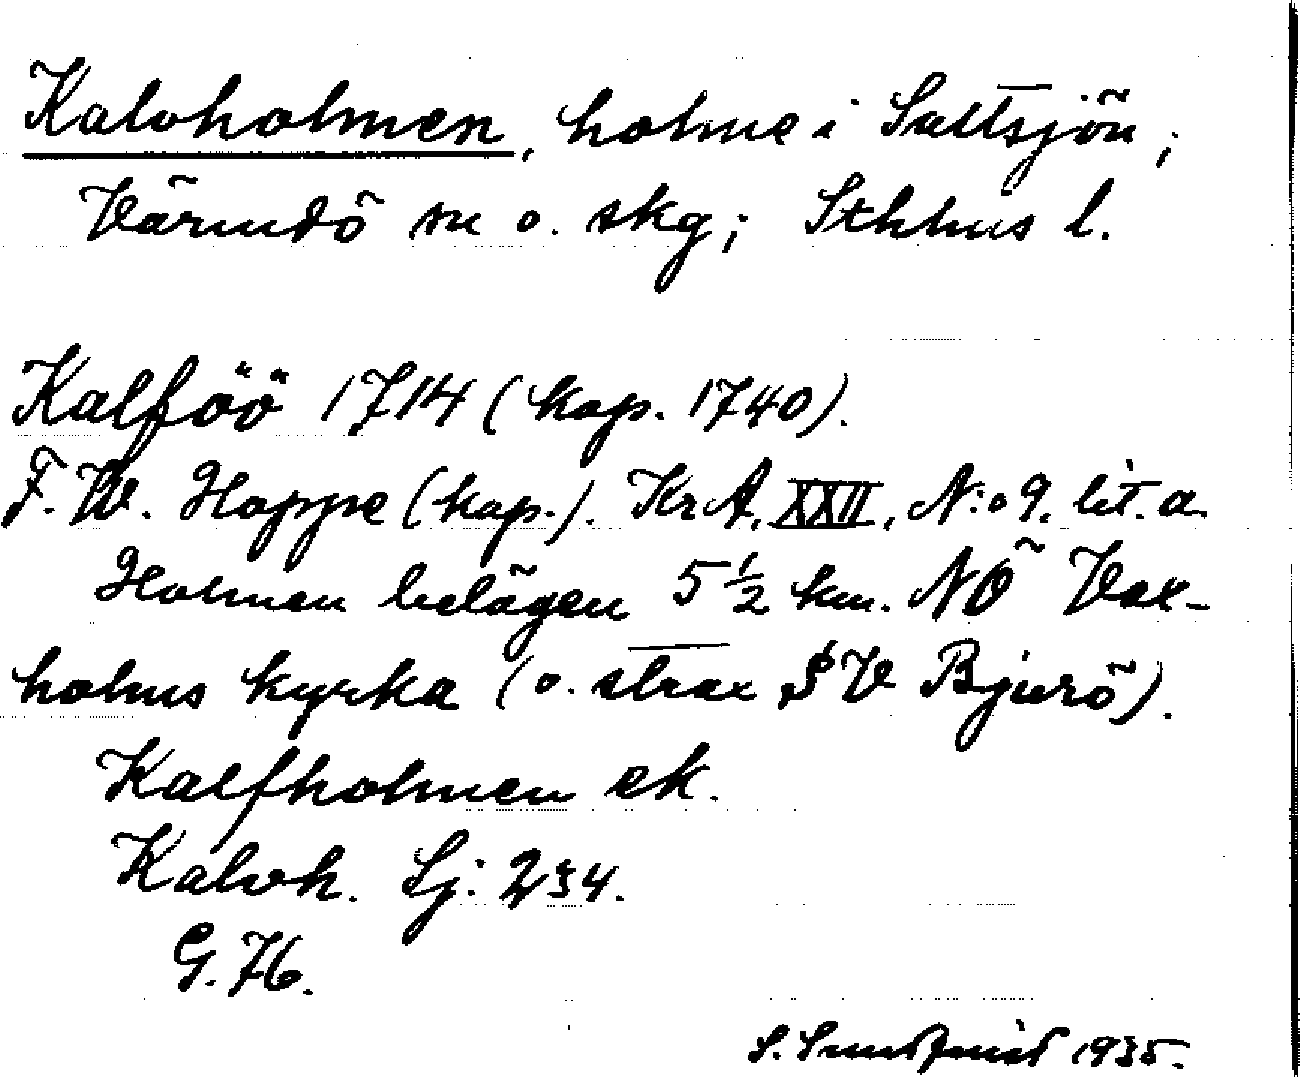 Kalvholmen, holme i Saltsjön;
Värmdö sn o. skg; Sthlms l.
Kalföö 1714 (kop. 1740).
F. W. Hoppe (kop.). KrA, XXII, N:o 9. lit. a.
Holmen belägen 5 1/2 km. NÖ Vax-
holms kyrka (o. strax SV Bjurö).
Kalfholmen ek.
Kalvh. Sj: 234.
G. 76.
S. Sundquist 1935.